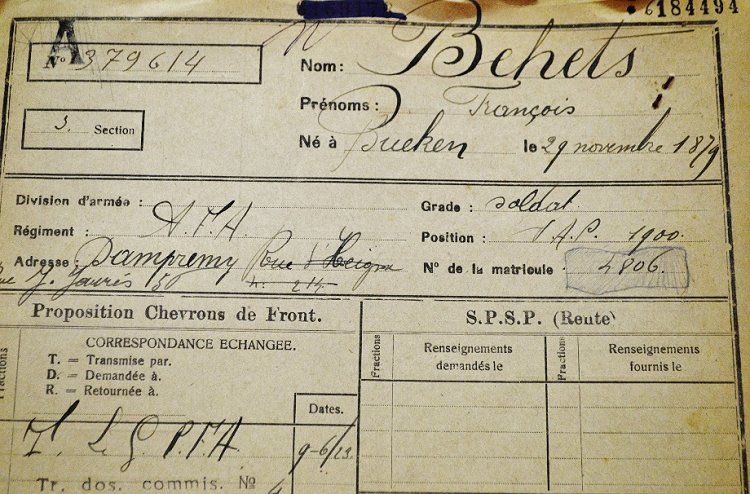 6184494
A
N° 379614
Nom: Behets
Prénoms: François
3. Section
Né à Bueken le 29 novembre 1879
Division d'armée:
Grade: soldat
Régiment: A.T.A.
Position: 1900
Adresse: Dampremy Rue d'
N° de la matricule 4806.
J. Jaurès 5
Proposition Chevrons de Front.
S.P.S.P. (Rente)
Fractions
CORRESPONDANCE ECHANGEE.
T. = Transmise par.
D. = Demandée à.
R. = Retournée à.
Dates.
Fractions
Renseignements
demandés le
Fractions
Renseignements
fournis le
9-6/23
Tr. dos. commis. N°